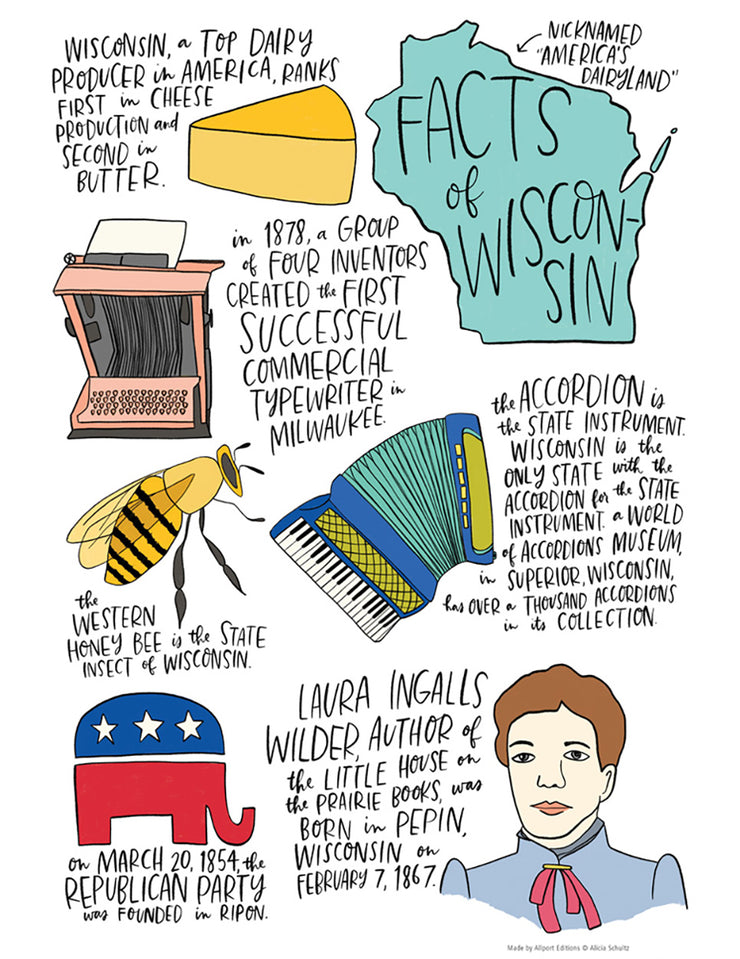 WISCONSIN, a TOP DAIRY
PRODUCER in AMERICA, RANKS
FIRST in CHEESE
PRODUCTION and
SECOND in
BUTTER.
NICKNAMED
"AMERICA'S
DAIRYLAND"
FACTS
of
WISCON-
SIN
in 1878, a GROUP
of FOUR INVENTORS
CREATED the FIRST
SUCCESSFUL
COMMERCIAL
TYPEWRITER in
MILWAUKEE.
the ACCORDION is
the STATE INSTRUMENT.
WISCONSIN is the
ONLY STATE with the
ACCORDION for the STATE
INSTRUMENT. a WORLD
of ACCORDIONS MUSEUM,
in SUPERIOR, WISCONSIN,
has OVER a THOUSAND ACCORDIONS
in its COLLECTION.
the
WESTERN
HONEY BEE is the STATE
INSECT of WISCONSIN.
LAURA INGALLS
WILDER, AUTHOR of
the LITTLE HOUSE on
the PRAIRIE BOOKS, was
BORN in PEPIN,
WISCONSIN on
FEBRUARY 7, 1867.
on MARCH 20, 1854, the
REPUBLICAN PARTY
was FOUNDED in RIPON.
Made by Allport Editions © Alicia Schultz